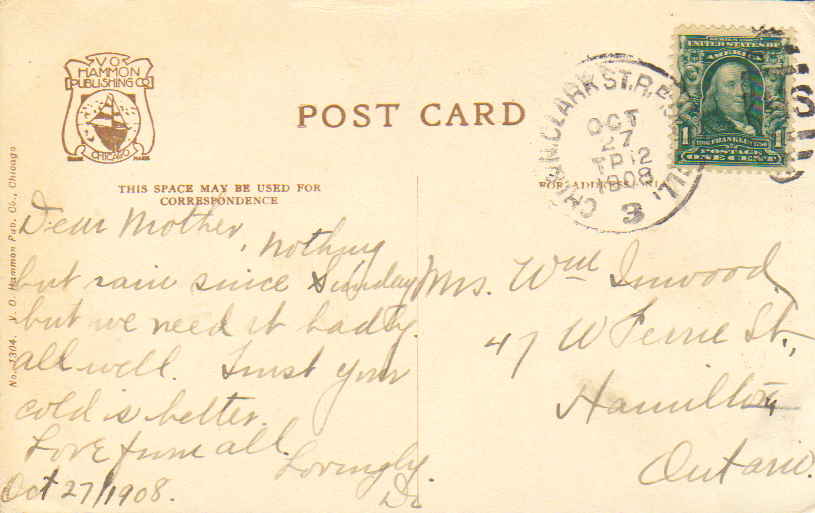 V.O.
HAMMON
PUBLISHING CO
CHICAGO
TRADE MARK
POST CARD
THIS SPACE MAY BE USED FOR
CORRESPONDENCE
FOR ADDRESS
No. 1304. V. O. Hammon Pub. Co., Chicago
CLARK ST.
OCT
27
12
1908
3
UNITED STATES OF
AMERICA
1 FRANKLIN 1
POSTAGE
ONE CENT
Dear Mother, Nothing
but rain since Sunday
but we need it badly.
all well. Trust your
cold is better.
Love from all.
Lovingly.
Oct 27/1908.
Mrs. Wm Inwood
47 W Ferrie St.,
Hamilton
Ontario.